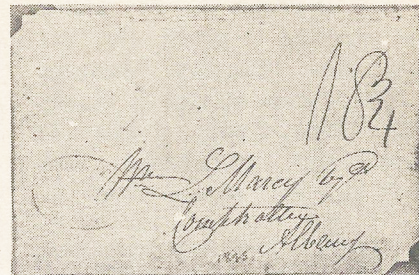 18¾
Wm L. Marcy Esqr
Comptroller
Albany